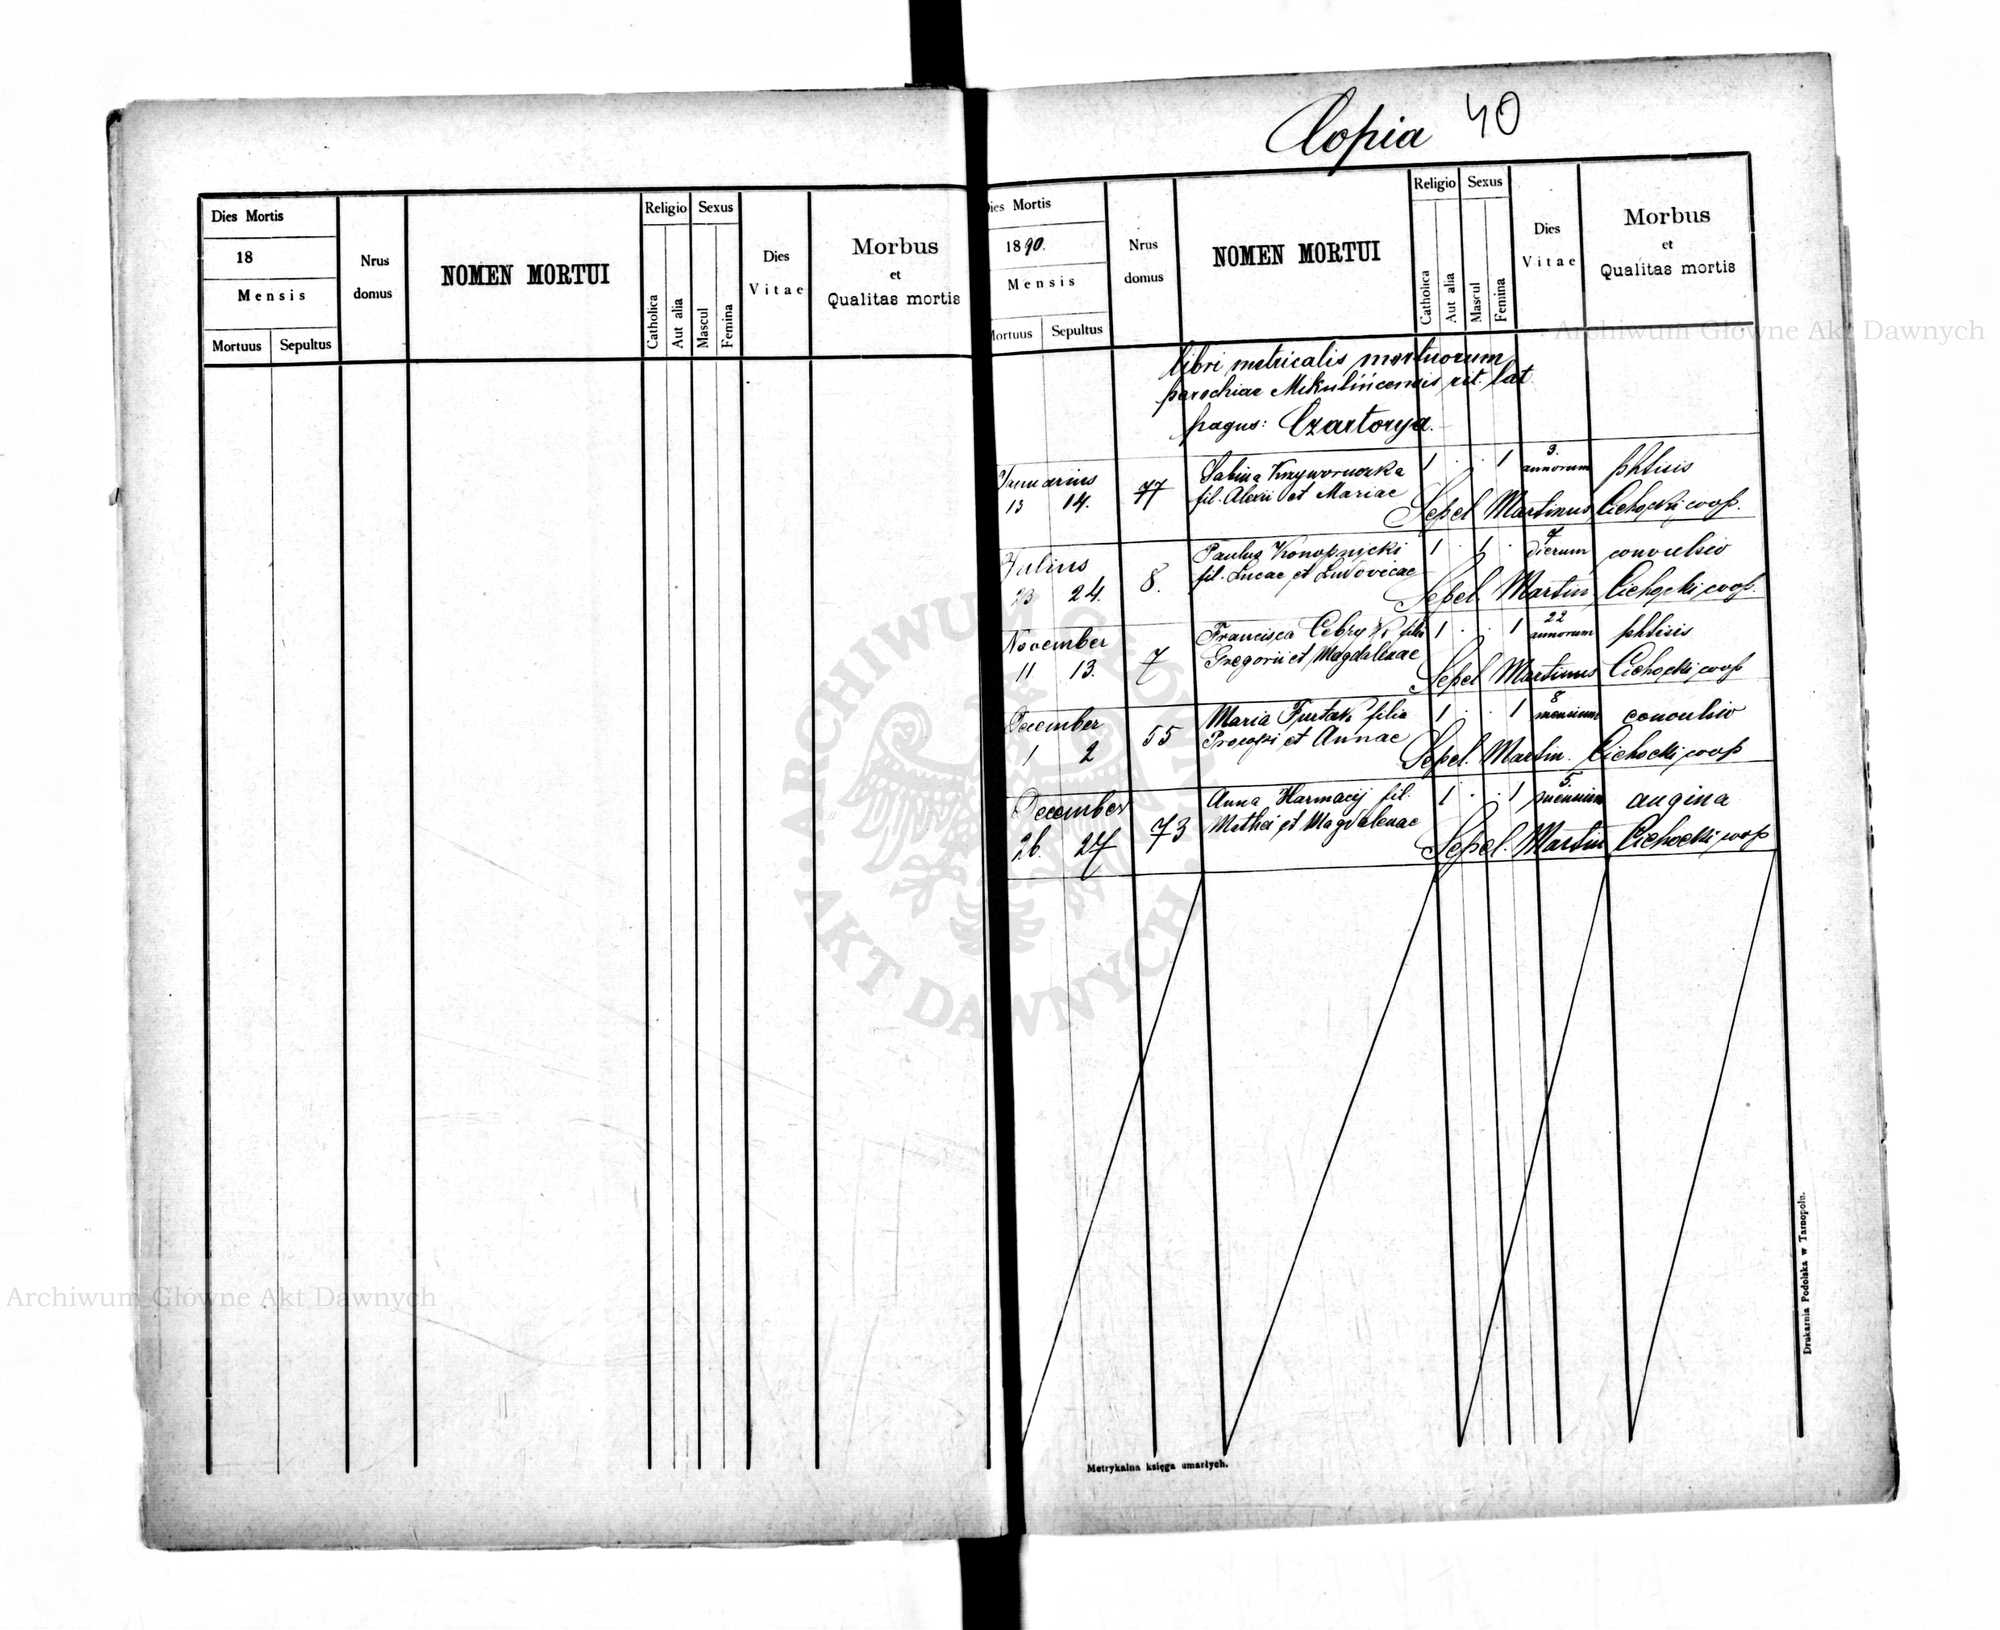 Copia 40
Dies Mortis
18
Mensis
Mortuus Sepultus
Nrus
domus
NOMEN MORTUI
Religio
Catholica
Aut alia
Sexus
Mascul
Femina
Dies
Vitae
Morbus
et
Qualitas mortis
Dies Mortis
1890.
Mensis
Mortuus Sepultus
Nrus
domus
NOMEN MORTUI
Religio
Catholica
Aut alia
Sexus
Mascul
Femina
Dies
Vitae
Morbus
et
Qualitas mortis
libri metricalis mortuorum
parochiae Mikulińcensis rit. lat
pagus: Czartorya.
Januarius
13 14. 77
Sabina
fil. Alexii et Mariae
1 . . 1 3. annorum phtisis
Sepel Martinus Cichocki coop.
Julius
23 24. 8.
Paulus Konopnycki
fil. Lucae et Ludovicae
1 . 1 . dierum convulsio
Sepel. Martin Cichocki coop.
November
11 13. 7
Francisca Cebry filia
Gregorii et Magdalenae
1 . . 1 22 annorum phtisis
Sepel Martinus Cichocki coop
December
1 2 55
Maria Furtak filia
Procopii et Annae
1 . . 1 8 mensium convulsio
Sepel. Martin. Cichocki coop
December
26. 27 73
Anna Harmacij fil.
Mathei et Magdalenae
1 . . 1 5. mensium angina
Sepel. Martin Cichocki coop
Metrykalna księga umarłych.
Drukarnia Podolska w Tarnopolu.
Archiwum Główne Akt Dawnych
Archiwum Główne Akt Dawnych
ARCHIWUM GŁÓWNE
AKT DAWNYCH